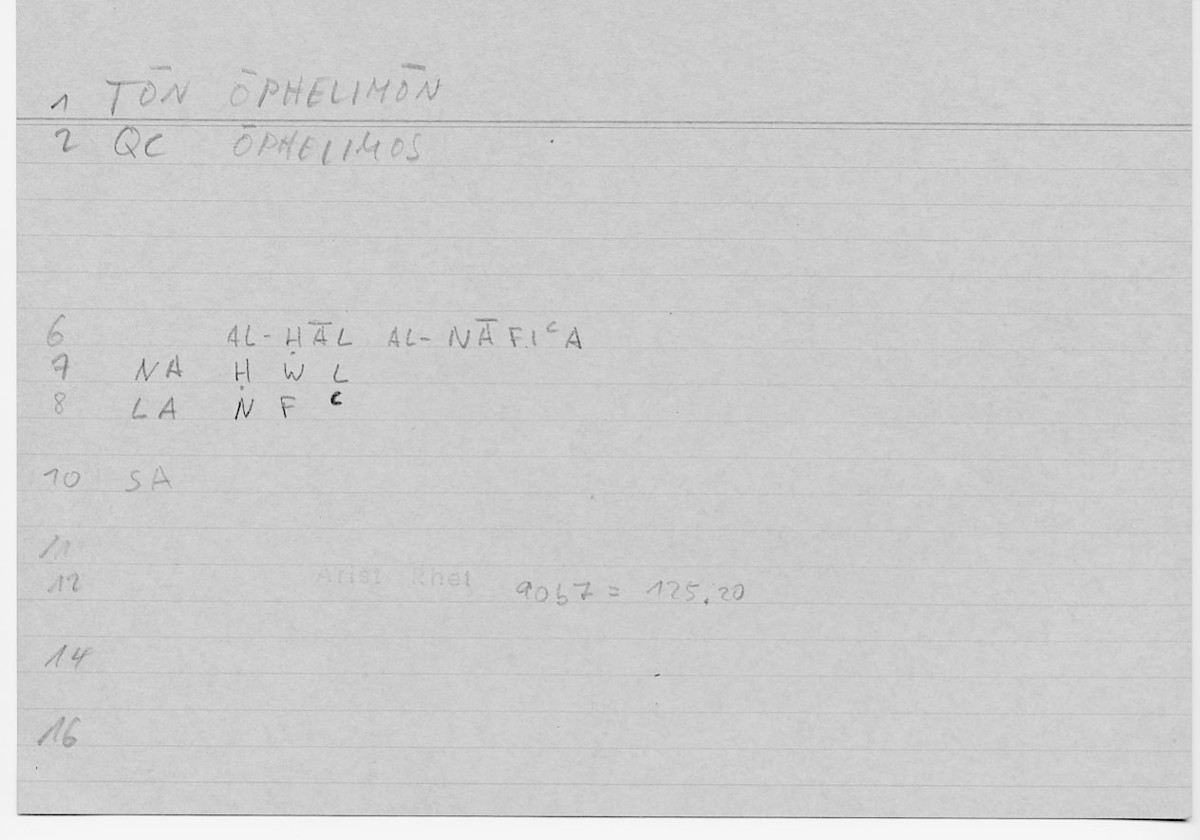 1 TŌN ŌPHELIMŌN
2 QC ŌPHELIMOS
6 AL-ḤĀL AL-NĀFIᶜA
7 NA Ḥ W L
8 LA N F ᶜ
10 SA
11
12 Arist Rhet 90b7 = 125.20
14
16